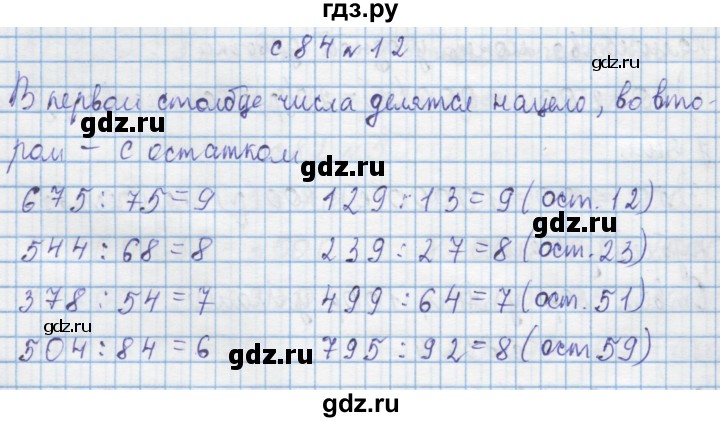 гдз.ру
с 84 № 12
gdz.ru
В первом столбце числа делятся нацело, во вто-
ром – с остатком.
gdz.ru
675 : 75 = 9 129 : 13 = 9 (ост. 12)
gdz.ru
544 : 68 = 8 239 : 27 = 8 (ост. 23)
378 : 54 = 7 499 : 64 = 7 (ост. 51)
gdz.ru
504 : 84 = 6 795 : 92 = 8 (ост 59)
gdz.ru
gdz.ru